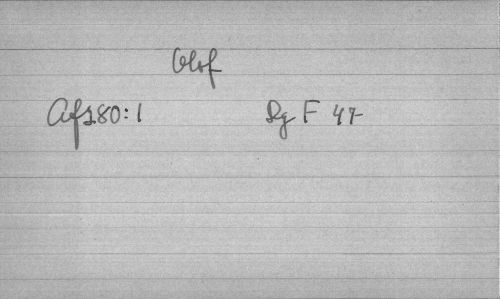 Olof
Af180:1 Dg F 47